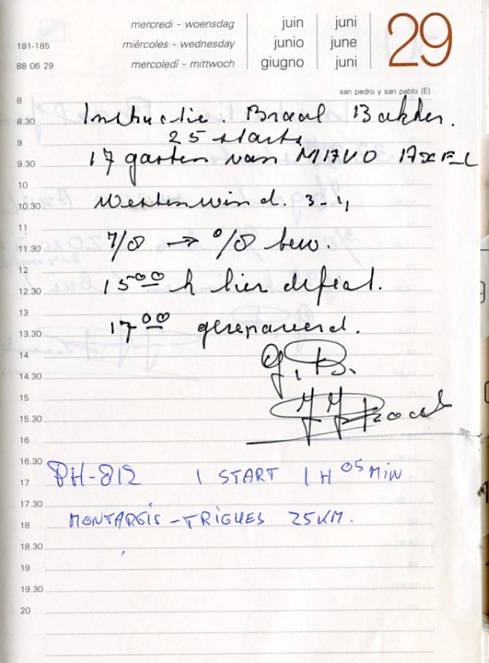 mercredi - woensdag juin juni
181-185 miércoles - wednesday junio june 29
88 06 29 mercoledì - mittwoch giugno juni
san pedro y san pablo (E)
8
8.30 Instructie: Braal Bakker.
9 25 starts
9.30 17 gasten van MAVO
10
10.30 Westenwind. 3-4
11
11.30 7/8 → 0/8 bew.
12
12.30 15 00 h lier defect.
13
13.30 17 00 gerepareerd.
14 G. B.
14.30
15
15.30
16
16.30 PH-812 1 START 1 H 05 MIN
17
17.30 MONTARGIS - TRIGUES 25 KM.
18
18.30
19
19.30
20